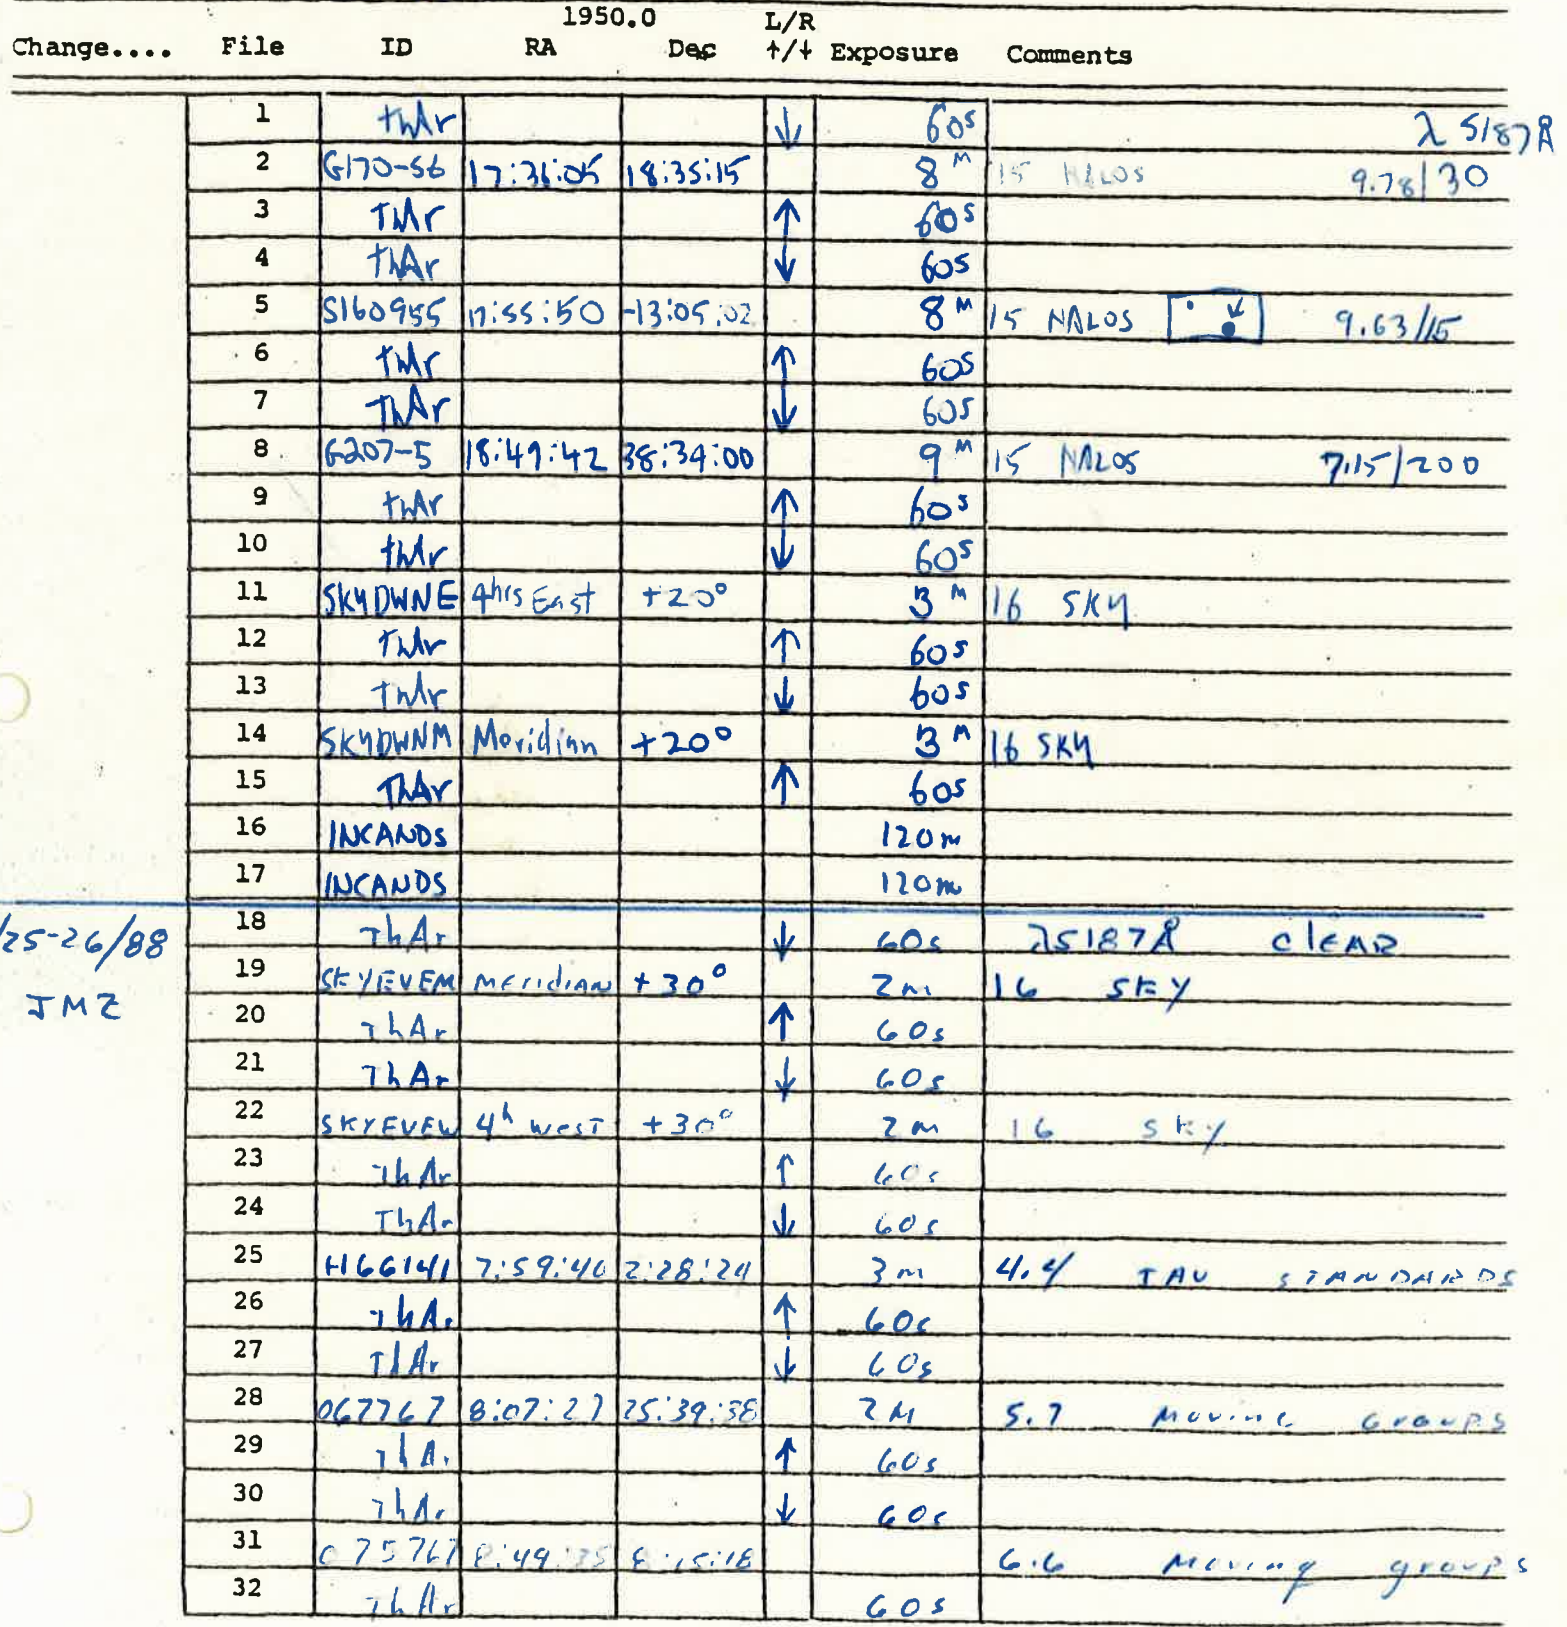 1950.0 L/R
Change.... File ID RA Dec ↑/↓ Exposure Comments
1 thAr ↓ 60s λ 5187Å
2 G170-56 17:36:05 18:35:15 8M 15 HALOS 9.78/30
3 ThAr ↑ 60s
4 thAr ↓ 60s
5 S160955 17:55:50 -13:05:02 8M 15 HALOS 9.63/15
6 thAr ↑ 60s
7 ThAr ↓ 60s
8 G207-5 18:49:42 38:34:00 9M 15 HALOS 7.15/200
9 thAr ↑ 60s
10 thAr ↓ 60s
11 SKYDWNE 4hrs East +20° 3M 16 SKY
12 ThAr ↑ 60s
13 ThAr ↓ 60s
14 SKYDWNM Meridian +20° 3M 16 SKY
15 ThAr ↑ 60s
16 INCANDS 120m
17 INCANDS 120m
/25-26/88 18 ThAr ↓ 60s λ5187Å CLEAR
19 SKYEVEM MERIDIAN +30° 2m 16 SKY
JMZ 20 ThAr ↑ 60s
21 ThAr ↓ 60s
22 SKYEVEW 4h WEST +30° 2m 16 SKY
23 ThAr ↑ 60s
24 ThAr ↓ 60s
25 H66141 7:59:40 2:28:24 3m 4.4 TAU STANDARDS
26 ThAr ↑ 60s
27 ThAr ↓ 60s
28 067767 8:07:27 25:39:38 2M 5.7 Moving Groups
29 ThAr ↑ 60s
30 ThAr ↓ 60s
31 075767 8:49:35 6.6 Moving groups
32 ThAr 60s